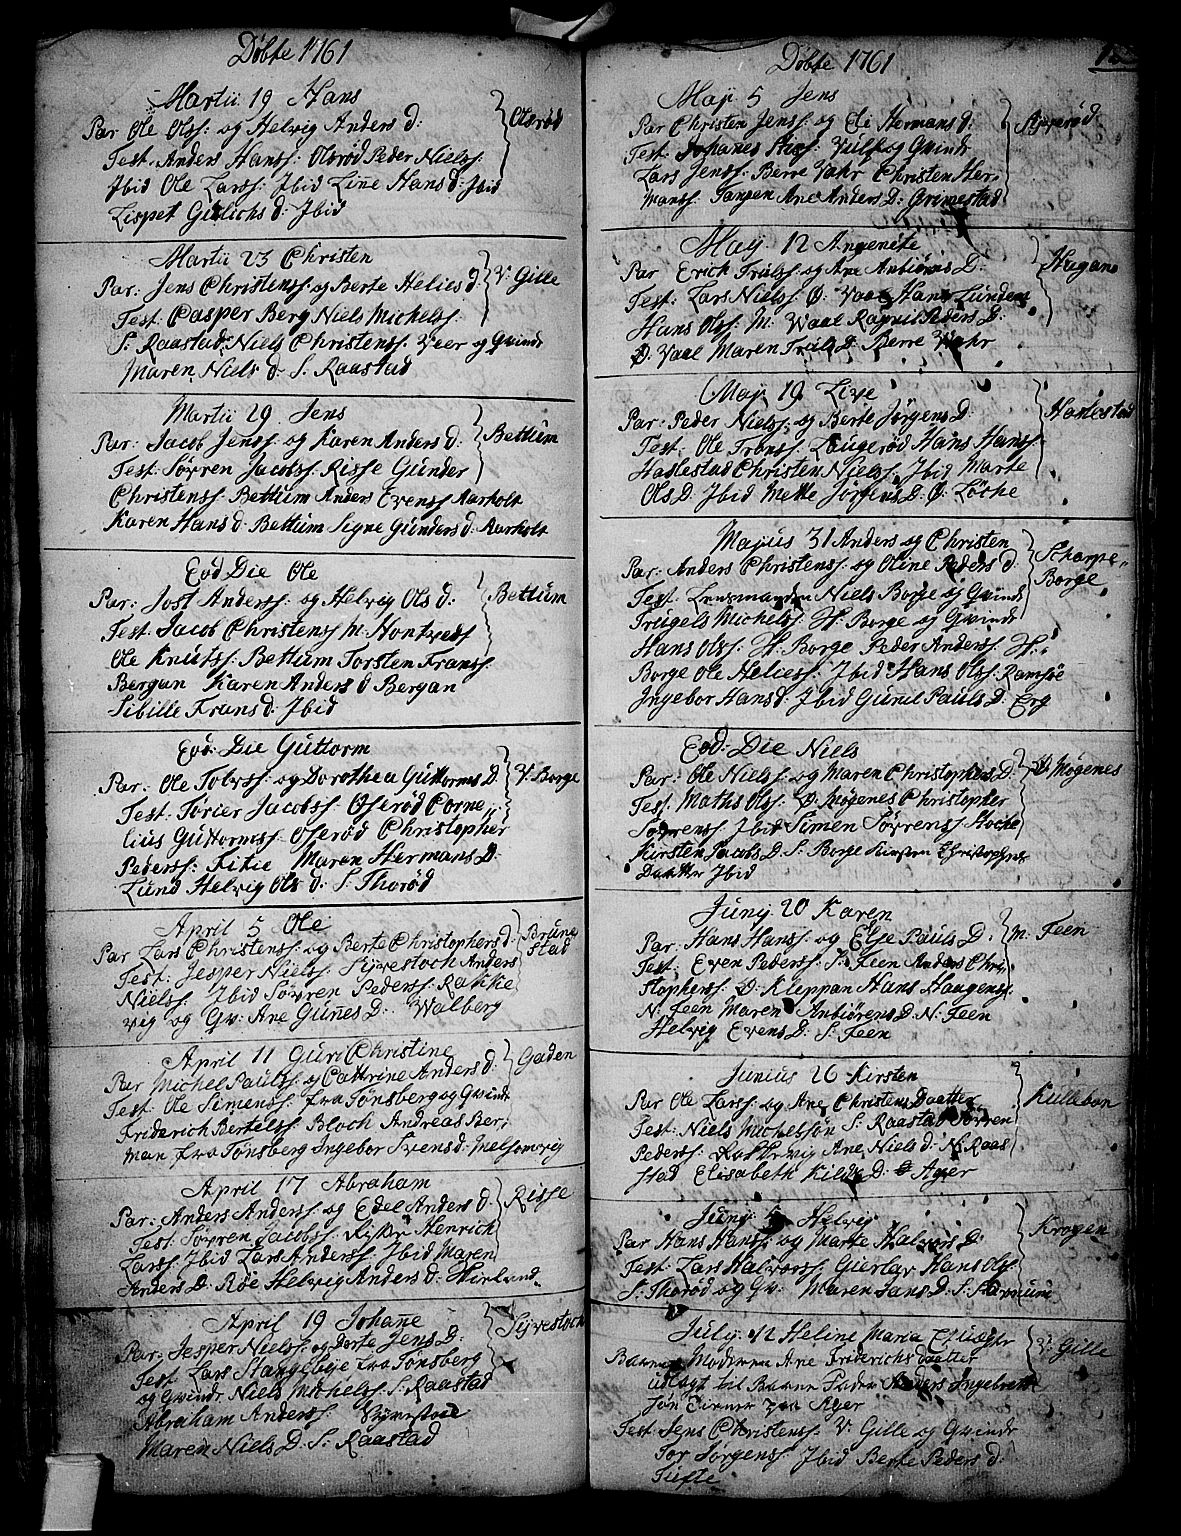 Døbte 1761
Martii 19 Hans
Par Ole Olss: og Helvig Anders d: Olsrød
Test: Anders Hanss: Olsrød Peder Nielss:
Ibid Ole Larss: Ibid Line Hans d: Ibid
Lispet Gulichs d: Ibid
Martii 23 Christen
Par: Jens Christenss: og Berte Helies d: V: Gille
Test: Casper Berg Niels Michelss:
S: Raastad Niels Christenss: Veer og Gvinde
Maren Niels d: S: Raastad
Martii 29 Jens
Par: Jacob Jenss: og Karen Anders d: Bettum
Test: Sørren Jacobss: Risse Gunder
Christenss: Bettum Anders Evenss Aarholt
Karen Hans d: Bettum Signe Gunders d: Aarholt
Eod Die Ole
Par: Jost Anderss: og Helvig Ols d: Bettum
Test: Jacob Christenss M: Hontvedt
Ole Knutss: Bettum Torsten Franss:
Bergan Karen Anders d Bergan
Sibille Frans d: Ibid
Eod: Die Guttorm
Par: Ole Tolvss: og Dorothea Guttorms D: V: Borge
Test: Torier Jacobss: Oserød Corne,,
lius Guttormss: Oserød Christopher
Pederss: Fitie Maren Hermans D:
Lund Helvig Ols d: S: Thorød
April 5 Ole
Par Lars Christenss: og Berte Christophers d: Brune
Stad
Test: Jesper Nielss: Syvestoch Anders
Nielss: Ibid Sørren Pederss: Rakke
vig og Gv: Ane Gunes D: Walberg
April 11 Guri Christine
Par Michel Paulss: og Cattrine Anders d: Gaden
Test: Ole Simenss: fra Tønsberg og Gvinde
Friderich Bertelss: Bloch Andreas Ber,
man fra Tønsberg Ingebor Svens d: Melsomvig
April 17 Abraham
Par: Anders Anderss: og Edel Anders d: Risse
Test: Sørren Jacobss: Henrich
Larss: Ibid Lars Anderss: Ibid Maren
Anders D: Røe Helvig Anders d: Hierland
April 19 Johane
Par: Jesper Nielss: og Dorte Jens D: Syvestoch
Test: Lars Stangebye fra Tønsberg
og Gvinde Niels Michelss: S: Raastad
Abraham Anderss:
Maren Niels D: S: Raastad
Døbte 1761
Maji 5 Jens
Par Christen Jenss: og Ele Hermans d:
Test: Johanes og Gvinde
Lars Jenss: Berre Vahr Christen Her,
manss: Tangen Ane Anders D: Grimestad
Maij 12 Angenete
Par Erich Trulss: og Ane Anbiørns D: Hagan
Test: Lars Nielss: Ø: Vaal Hans Lunden
Hans Olss: M: Vaal Ragnil Peders D:
Ø: Vaal Maren Truls D: Berre Vahr
Maji 19 Live
Par: Peder Nielss: og Berte Jørgens D: Haslestad
Test: Ole Fronss: Haugerød Hans Hanss
Haslestad Christen Nielss: Ibid Marte
Ols D: Ibid Mette Jørgens D: Ø: Løche
Majus 31 Anders og Christen
Par: Anders Christenss: og Oline Peders d: Scharpe,,
Borge
Test: Lensmanden Niels Borge og Gvinde
Trugels Michelss: H: Borge og Gvinde
Hans Olss: H: Borge Peder Anderss: H:
Borge Ole Heliess: Ibid Hans Olss: Ramsøe
Ingebor Hans d: Ibid Gunil Pauls D: Erg
Eod: Die Niels
Par: Ole Nielss: og Maren Christophers D: Ø: Møgenes
Test: Maths Olss: Ø: Møgenes Christopher
Sørrenss: Ibid Simen Sørrenss: Hoche
Kirsten Jacobs D: S: Borge Kirsten Christophers
Daatter Ibid
Junij 20 Karen
Par: Hans Hanss: og Else Pauls D: M: Feen
Test: Even Pederss: S: Feen Anders Chri,,
stophers: Ø: Kleppan Hans Haagenss:
N: Feen Maren Anbiørens D: N: Feen
Helvig Evens D: S: Feen
Junius 26 Kirsten
Par Ole Larss: og Ane Christens Daatter Kullebon
Test: Niels Michelssøn S: Raastad Sørren
Pederss: Ane Niels d: N: Raas
stad Elisabeth D: Ø Ager
Junij Helvig
Par Hans Hanss: og Marte Halvors D: Krogen
Test: Lars Halvorss: Gierlav Hans Olss:
S: Thorød og Gv: Maren Jans D: S: Stormuum
Julij 12 Heline Maria V: Gille
Moderen Ane Friderichs Daatter
udlagt til Barne Fader Anders Ingebret
søn paa Ager
Test: Jens Christenss: V: Gille og Gvinde
Tor Jørgenss: Ibid Berte Peders d:
Tufte